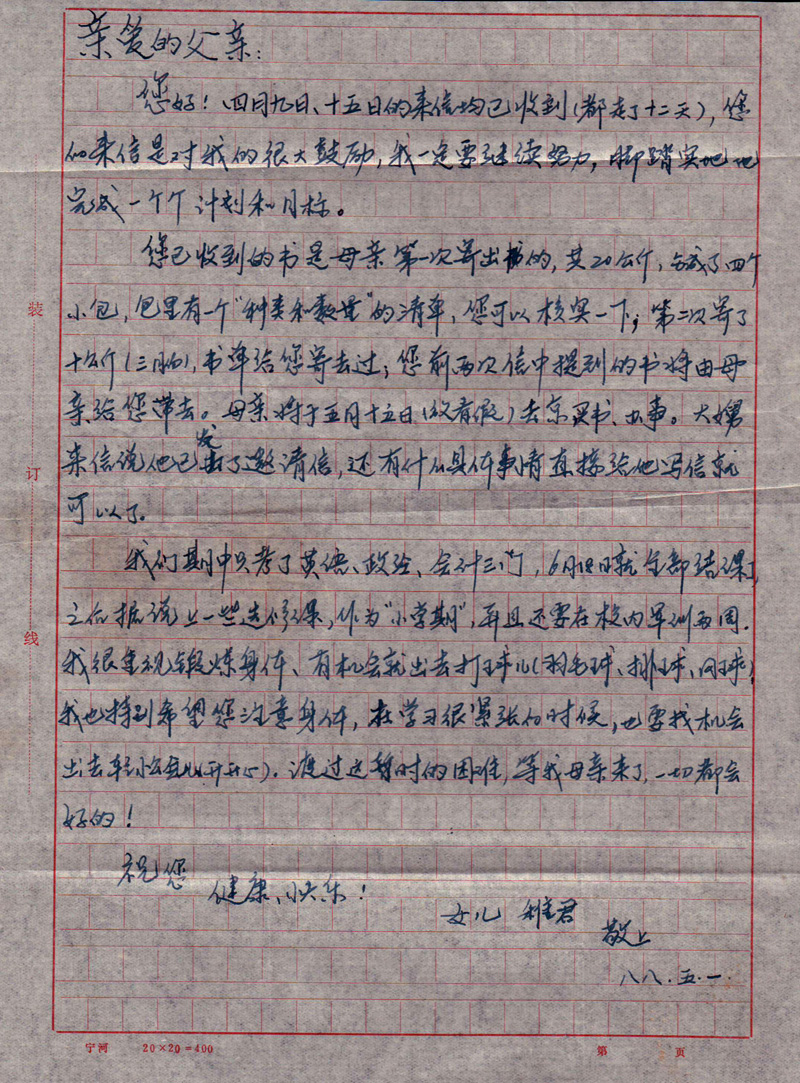 亲爱的父亲:
您好！四月九日、十五日的来信均已收到(都走了十二天),您
的来信是对我的很大鼓励,我一定要继续努力,脚踏实地地
完成一个个计划和目标。
您已收到的书是母亲第一次寄出的,共20公斤,成了四个
小包,包里有一个"种类和数量"的清单,您可以核实一下;第二次寄了
十公斤(三月),书单给您寄去过;您前两次信中提到的书将由母
亲给您带去。母亲将于五月十五日(没有假)去京买书、办事。大舅
来信说他已发了邀请信,还有什么具体事情直接给他写信就
可以了。
我们期中只考了英语、政经、会计三门,6月18日就全部结课了
之后据说上一些选修课,作为"小学期",并且还要在校内军训两周.
我很重视锻炼身体、有机会就出去打球儿(羽毛球、排球、网球)
我也特别希望您注意身体,在学习很紧张的时候,也要找机会
出去轻松会儿(开开心).渡过这暂时的困难,等我母亲来了,一切都会
好的!
祝您
健康、快乐!
女儿 君
敬上
八八.五.一.
装
订
线
宁河 20×20=400
第 页